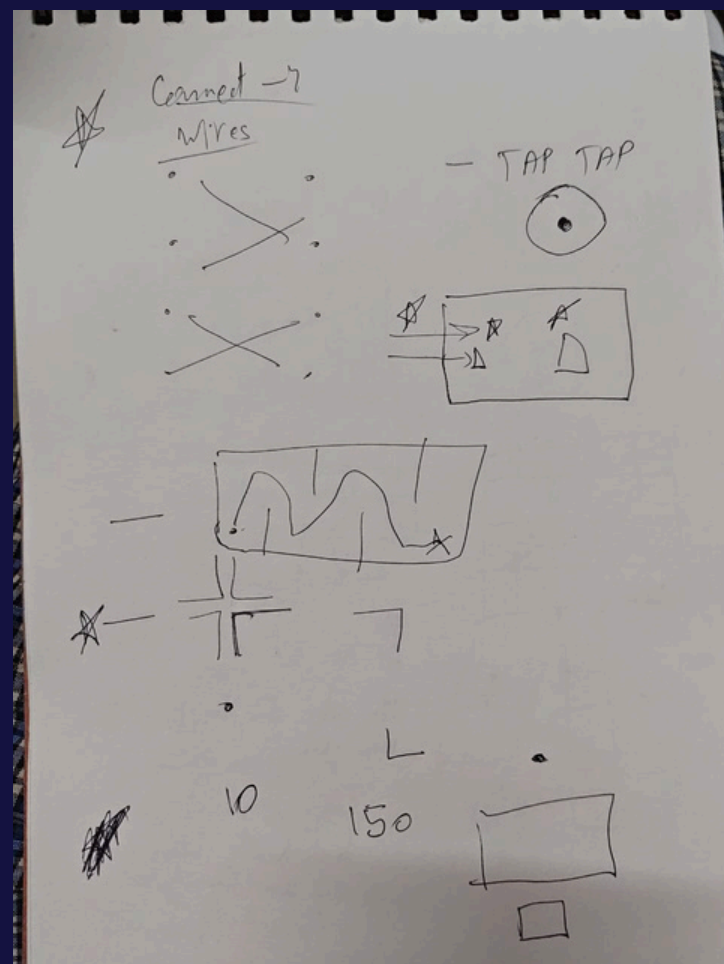 Connect
wires
— TAP TAP
10
150